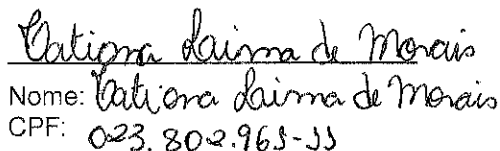 Tatiana Laisma de Morais
Nome: Tatiana Laisma de Morais
CPF: 023.802.965-55